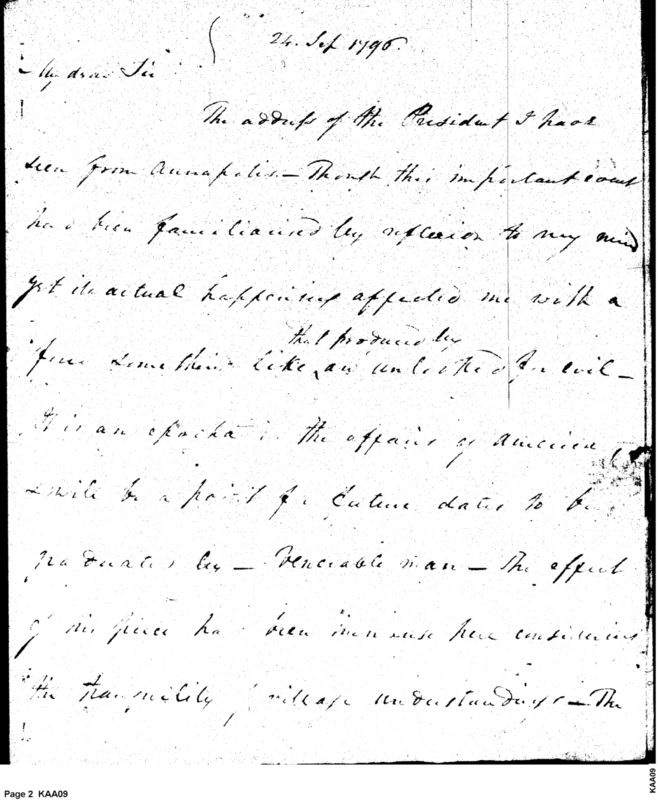 24. Sep 1796.
My dear Sir
The address of the President I have
seen from Annapolis — Though this important event
had been familiarised by reflexion to my mind
yet its actual happening affected me with a
that produced by
force something like an unlooked for evil —
It is an epocha in the affairs of America,
& will be a point for future dates to be
graduated by — Venerable man — The effect
of his piece has been immense here considering
the tranquility of village understandings — The
Page 2 KAA09
KAA09